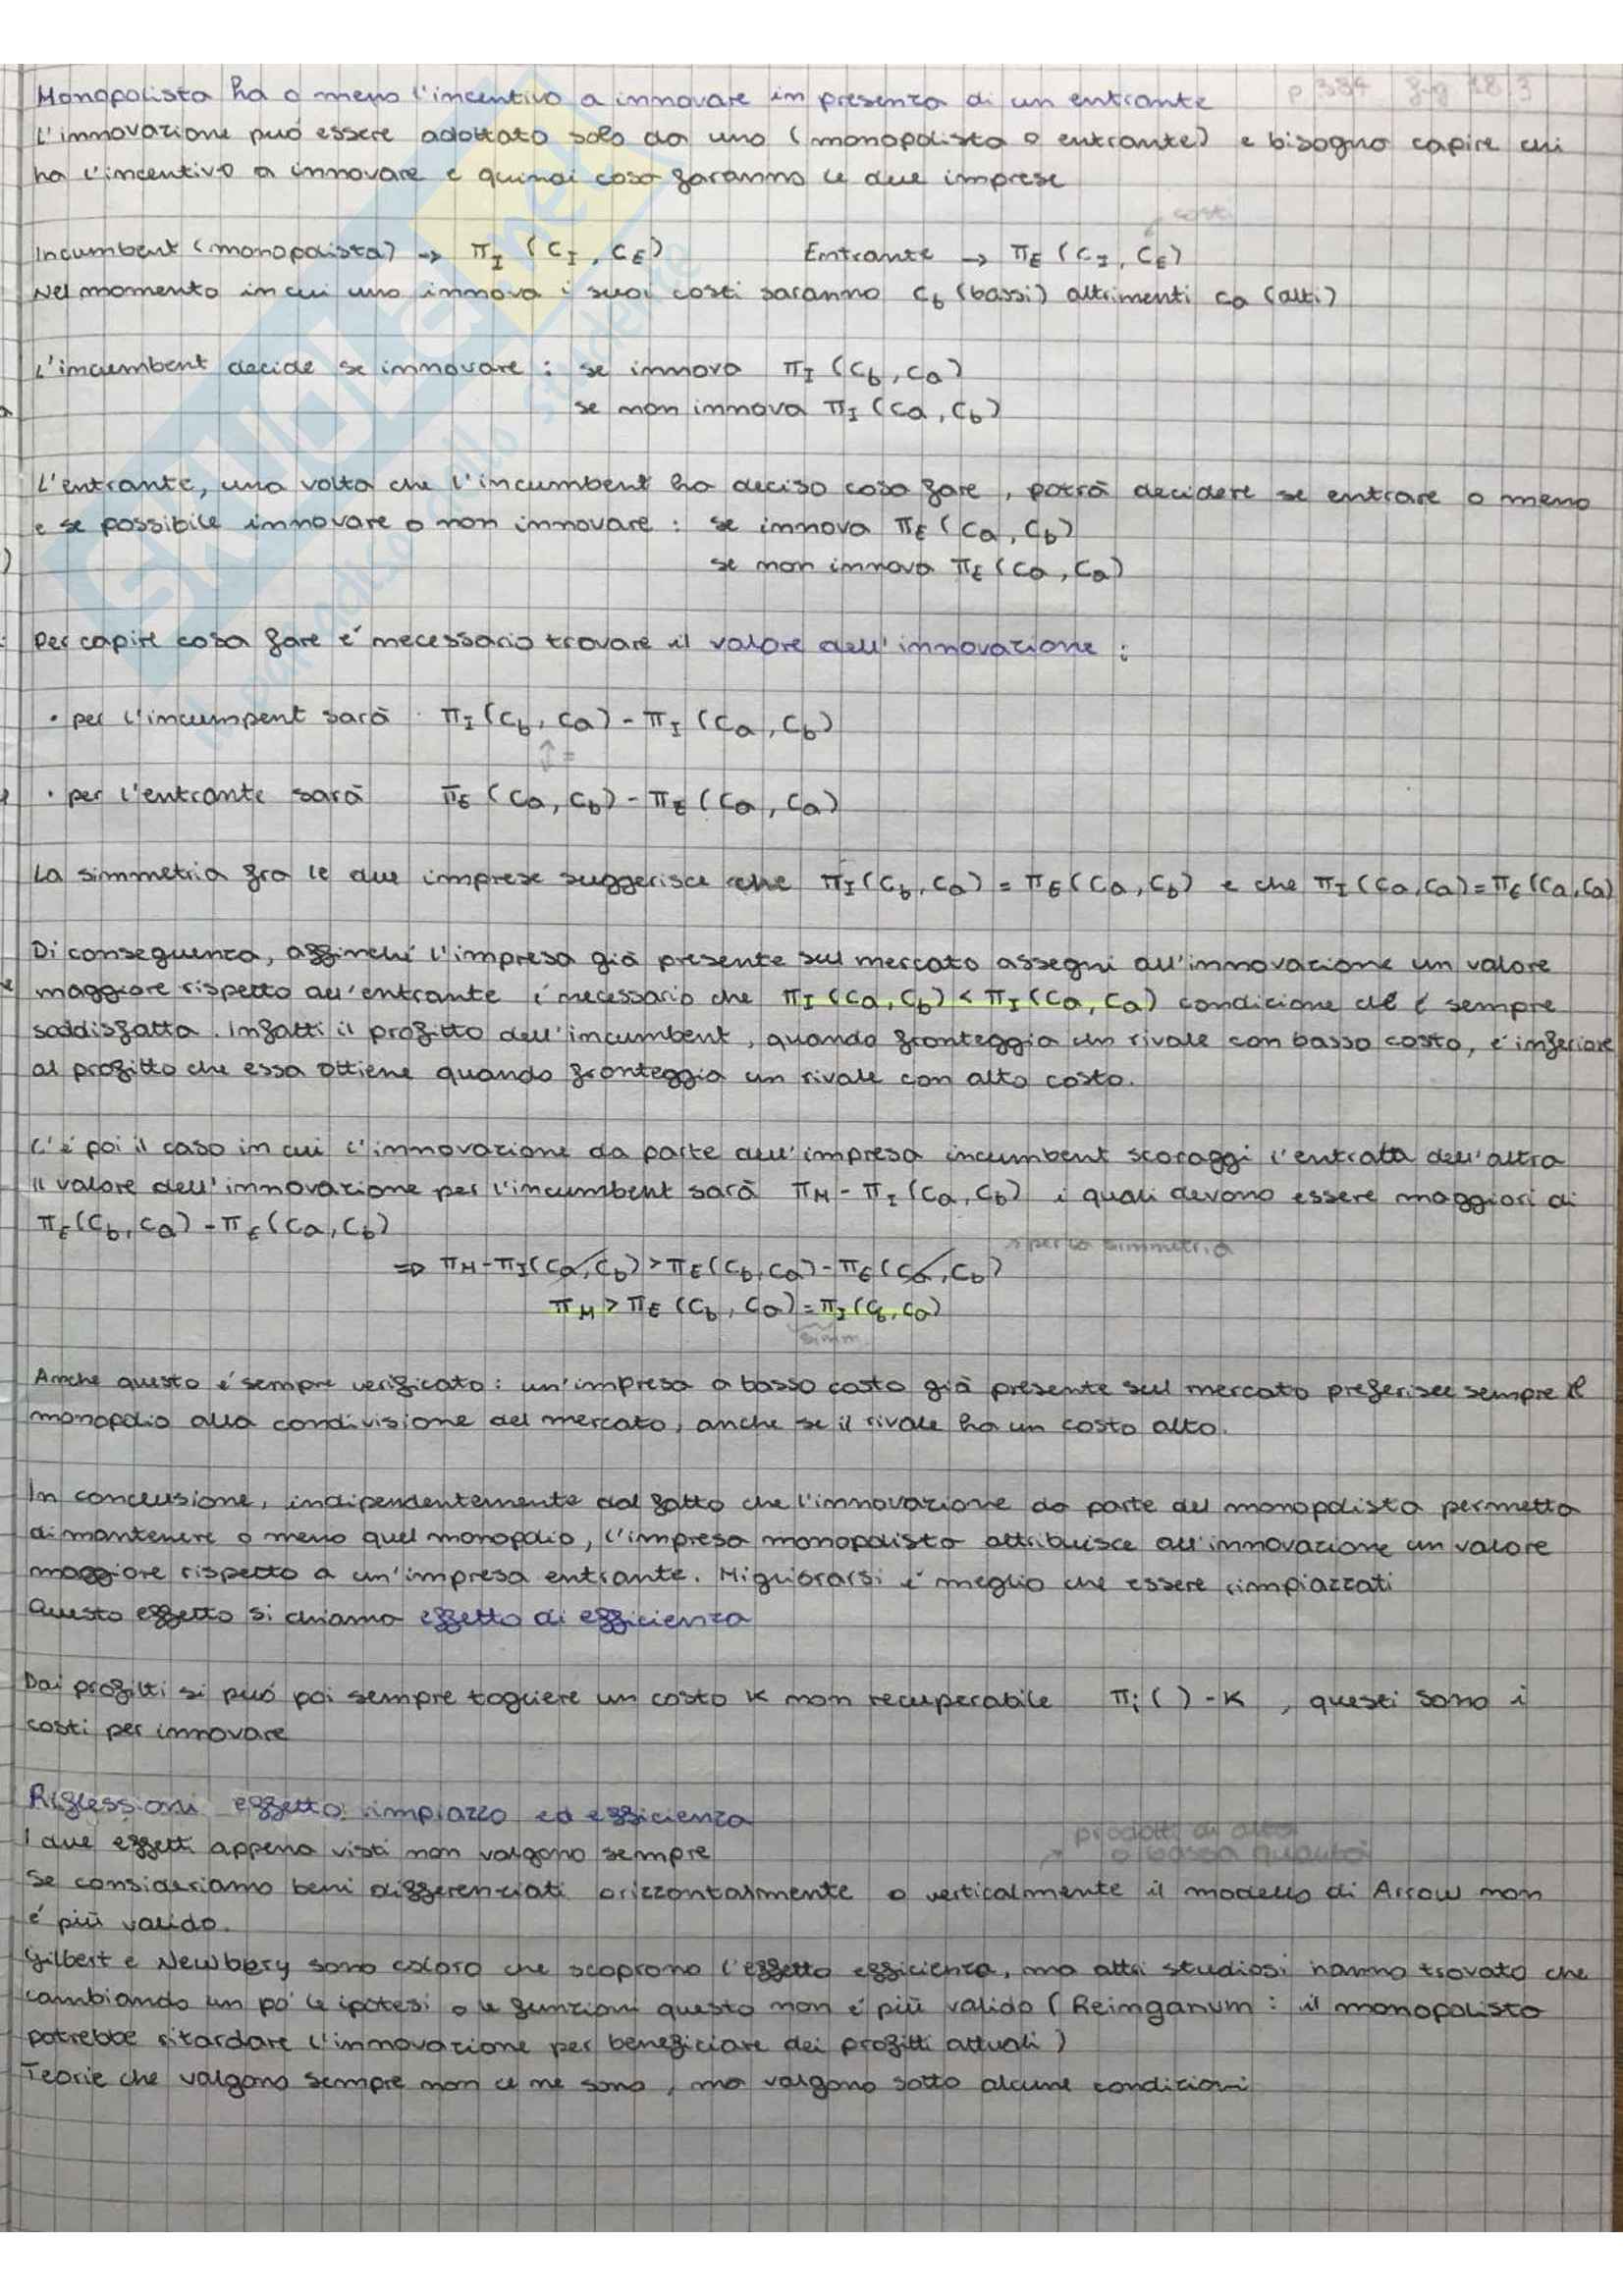 Monopolista ha o meno l'incentivo a innovare in presenza di un entrante p 384 fig 18.3
L'innovazione può essere adottata solo da uno (monopolista o entrante) e bisogna capire chi
ha l'incentivo a innovare e quindi cosa faranno le due imprese
costi
Incumbent (monopolista) → π_I (c_I, c_E) Entrante → π_E (c_I, c_E)
Nel momento in cui uno innova i suoi costi saranno c_b (bassi) altrimenti ca (alti)
L'incumbent decide se innovare : se innova π_I (c_b, ca)
se non innova π_I (ca, c_b)
L'entrante, una volta che l'incumbent ha deciso cosa fare, potrà decidere se entrare o meno
e se possibile innovare o non innovare : se innova π_E (ca, c_b)
se non innova π_E (ca, ca)
Per capire cosa fare é necessario trovare il valore dell'innovazione :
• per l'incumpent sarà π_I (c_b, ca) - π_I (ca, c_b)
↕ =
• per l'entrante sarà π_E (ca, c_b) - π_E (ca, ca)
La simmetria fra le due imprese suggerisce che π_I (c_b, ca) = π_E (ca, c_b) e che π_I (ca, ca) = π_E (ca, ca)
Di conseguenza, affinché l'impresa già presente sul mercato assegni all'innovazione un valore
maggiore rispetto all'entrante é necessario che π_I (ca, c_b) < π_I (ca, ca) condizione che é sempre
soddisfatta. Infatti il profitto dell'incumbent, quando fronteggia un rivale con basso costo, é inferiore
al profitto che essa ottiene quando fronteggia un rivale con alto costo.
C'é poi il caso in cui l'innovazione da parte dell'impresa incumbent scoraggi l'entrata dell'altra
Il valore dell'innovazione per l'incumbent sarà π_M - π_I (ca, c_b) i quali devono essere maggiori di
π_E (c_b, ca) - π_E (ca, c_b)
→ per la simmetria
⇒ π_M - π_I (ca, c_b) > π_E (c_b, ca) - π_E (ca, c_b)
π_M > π_E (c_b, ca) = π_I (c_b, ca)
simm.
Anche questo é sempre verificato : un'impresa a basso costo già presente sul mercato preferisce sempre il
monopolio alla condivisione del mercato, anche se il rivale ha un costo alto.
In conclusione, indipendentemente dal fatto che l'innovazione da parte del monopolista permetta
di mantenere o meno quel monopolio, l'impresa monopolista attribuisce all'innovazione un valore
maggiore rispetto a un'impresa entrante. Migliorarsi é meglio che essere rimpiazzati
Questo effetto si chiama effetto di efficienza
Dai profitti si può poi sempre togliere un costo K non recuperabile π_i ( ) - K , questi sono i
costi per innovare
Riflessioni effetto rimpiazzo ed efficienza
I due effetti appena visti non valgono sempre
prodotti di alta
o bassa qualità
Se consideriamo beni differenziati orizzontalmente o verticalmente il modello di Arrow non
é più valido.
Gilbert e Newbery sono coloro che scoprono l'effetto efficienza, ma altri studiosi hanno trovato che
cambiando un po' le ipotesi o le funzioni questo non é più valido (Reinganum : il monopolista
potrebbe ritardare l'innovazione per beneficiare dei profitti attuali)
Teorie che valgono sempre non ce ne sono, ma valgono sotto alcune condizioni